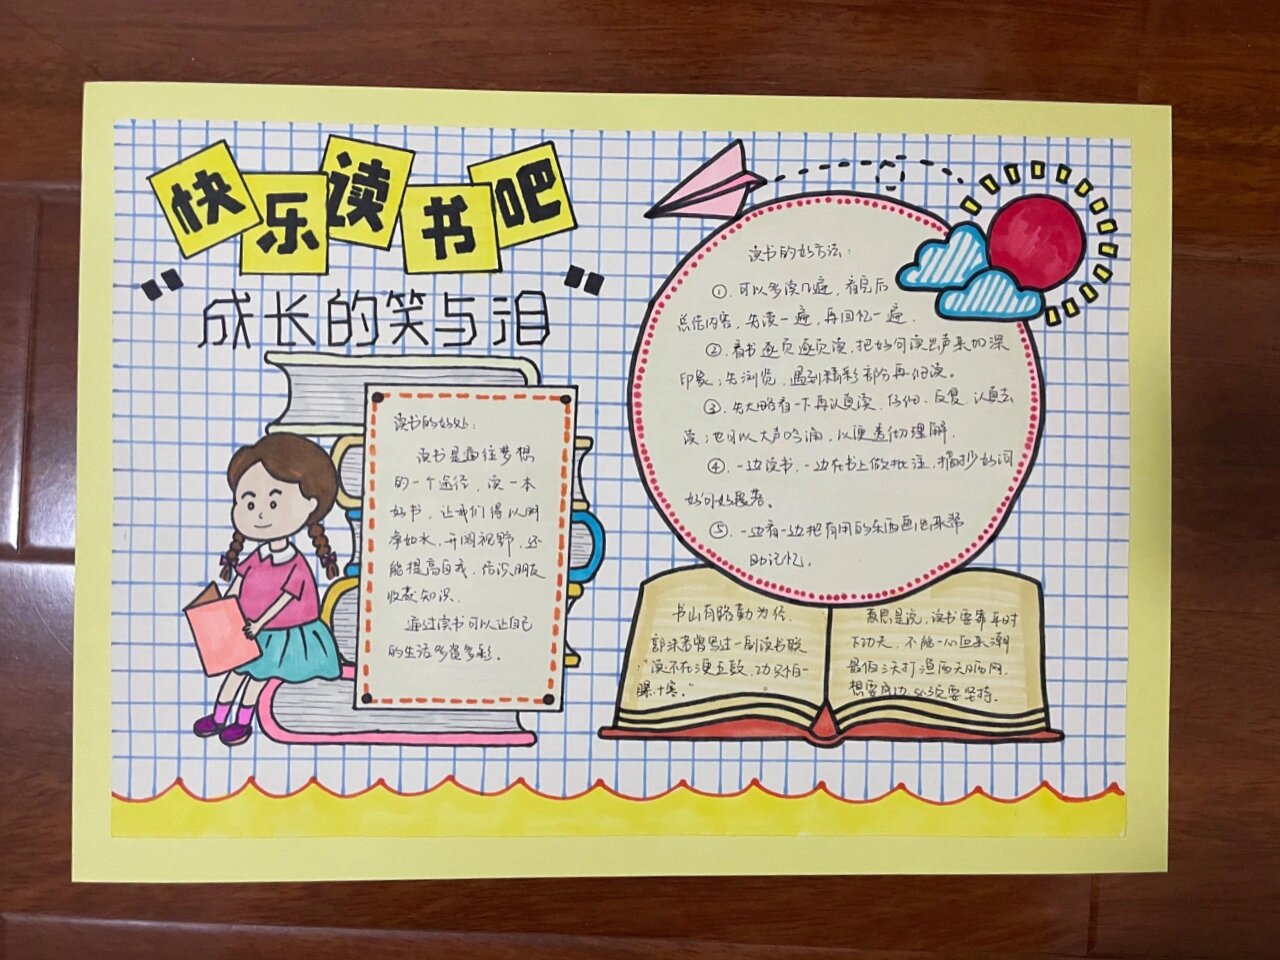 快乐读书吧
"成长的笑与泪"
读书的好处:
读书是通往梦想
的一个途径，读一本
好书，让我们得以明
净如水，开阔视野，还
能提高自我，结识朋友
收获知识.
通过读书可以让自己
的生活多姿多彩.
读书的好方法:
①.可以多读几遍，看完后
总结内容，先读一遍，再回忆一遍.
②.看书逐页逐页读，把好句读出声来加深
印象；先浏览，遇到精彩部分再细读。
③.先大略看一下再认真读，仔细、反复、认真去
读；也可以大声吟诵，以便透彻理解.
④.一边读书，一边在书上做批注，摘抄好词
好句好段落。
⑤.一边看一边把有用的东西画出来帮
助记忆.
书山有路勤为径.
郭沫若曾写过一副读书联
:"读不在三更五鼓，功只怕一
曝十寒."
意思是说，读书要靠平时
下功夫，不能一心血来潮
最似三天打渔两天晒网.
想要成功必须要坚持.